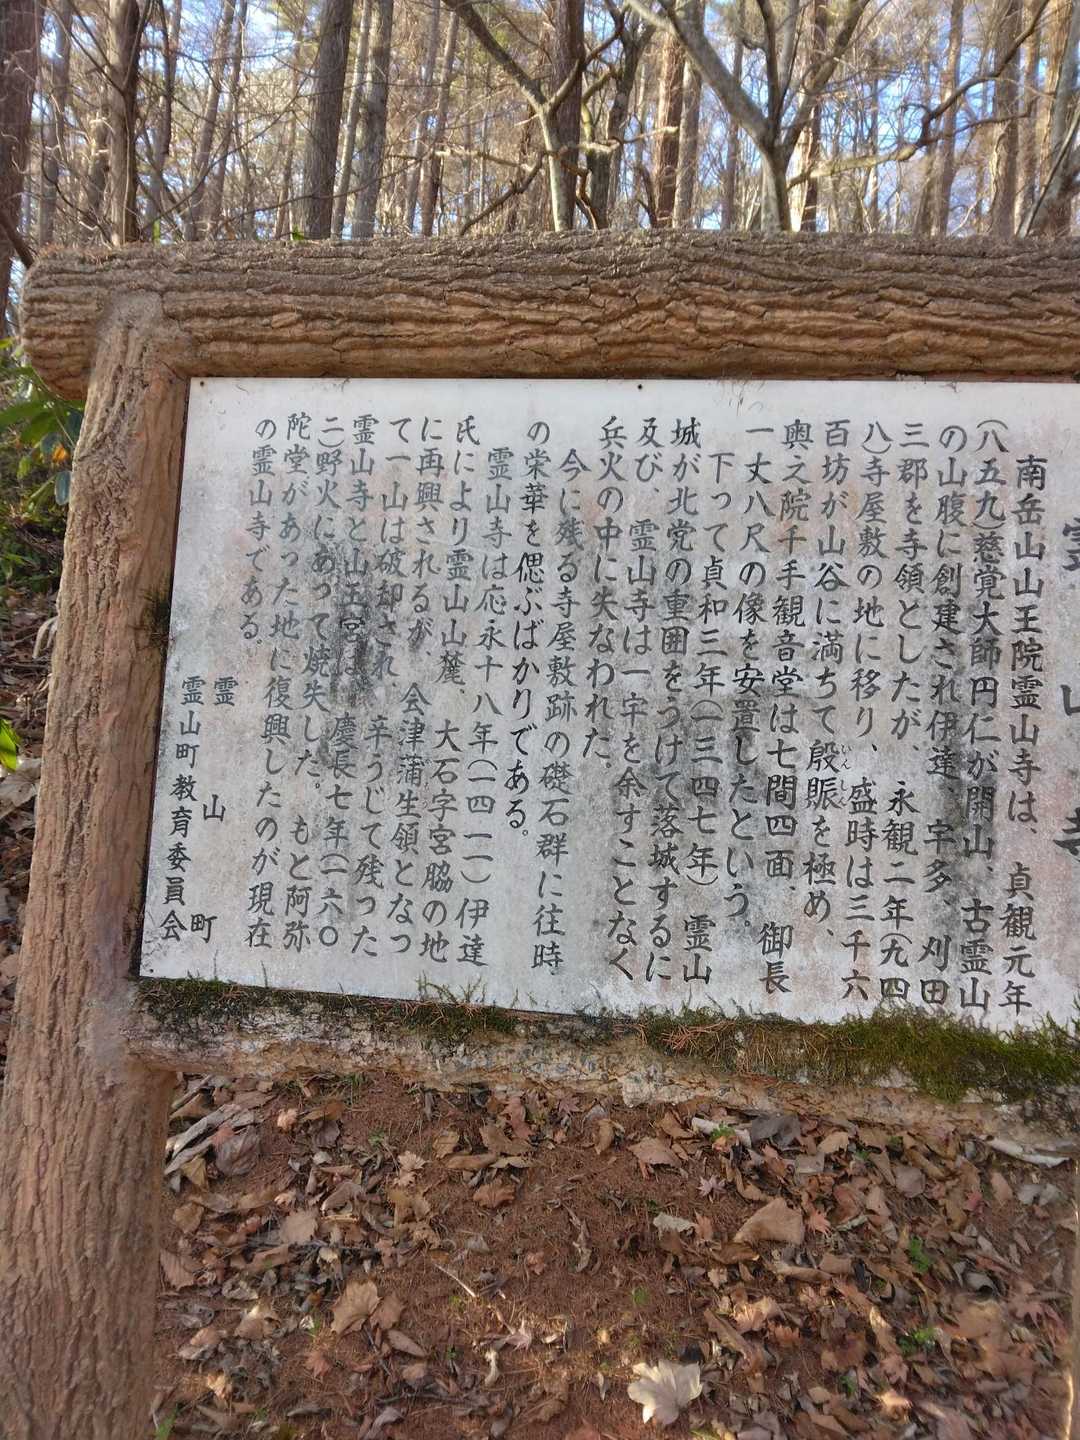 霊山寺
南岳山山王院霊山寺は、貞観元年
(八五九)慈覚大師円仁が開山、古霊山
の山腹に創建され伊達、宇多、刈田
三郡を寺領としたが、永観二年(九四
八)寺屋敷の地に移り、盛時は三千六
百坊が山谷に満ちて殷賑を極め、
いんしん
奥之院千手観音堂は七間四面、御長
一丈八尺の像を安置したという。
下って貞和三年(一三四七年)霊山
城が北党の重囲をうけて落城するに
及び、霊山寺は一宇を余すことなく
兵火の中に失なわれた。
今に残る寺屋敷跡の礎石群に往時
の栄華を偲ぶばかりである。
霊山寺は応永十八年(一四一一)伊達
氏により霊山山麓、大石字宮脇の地
に再興されるが、会津蒲生領となっ
て一山は破却され辛うじて残った
霊山寺と山王宮は慶長七年(一六〇
二)野火にあって焼失した。もと阿弥
陀堂があった地に復興したのが現在
の霊山寺である。
霊山町
霊山町教育委員会